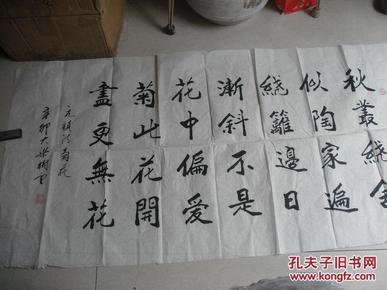 秋叢繞舍
似陶家遍
繞籬邊日
漸斜不是
花中偏愛
菊此花開
盡更無花
元稹詩菊花
辛卯
孔夫子旧书网